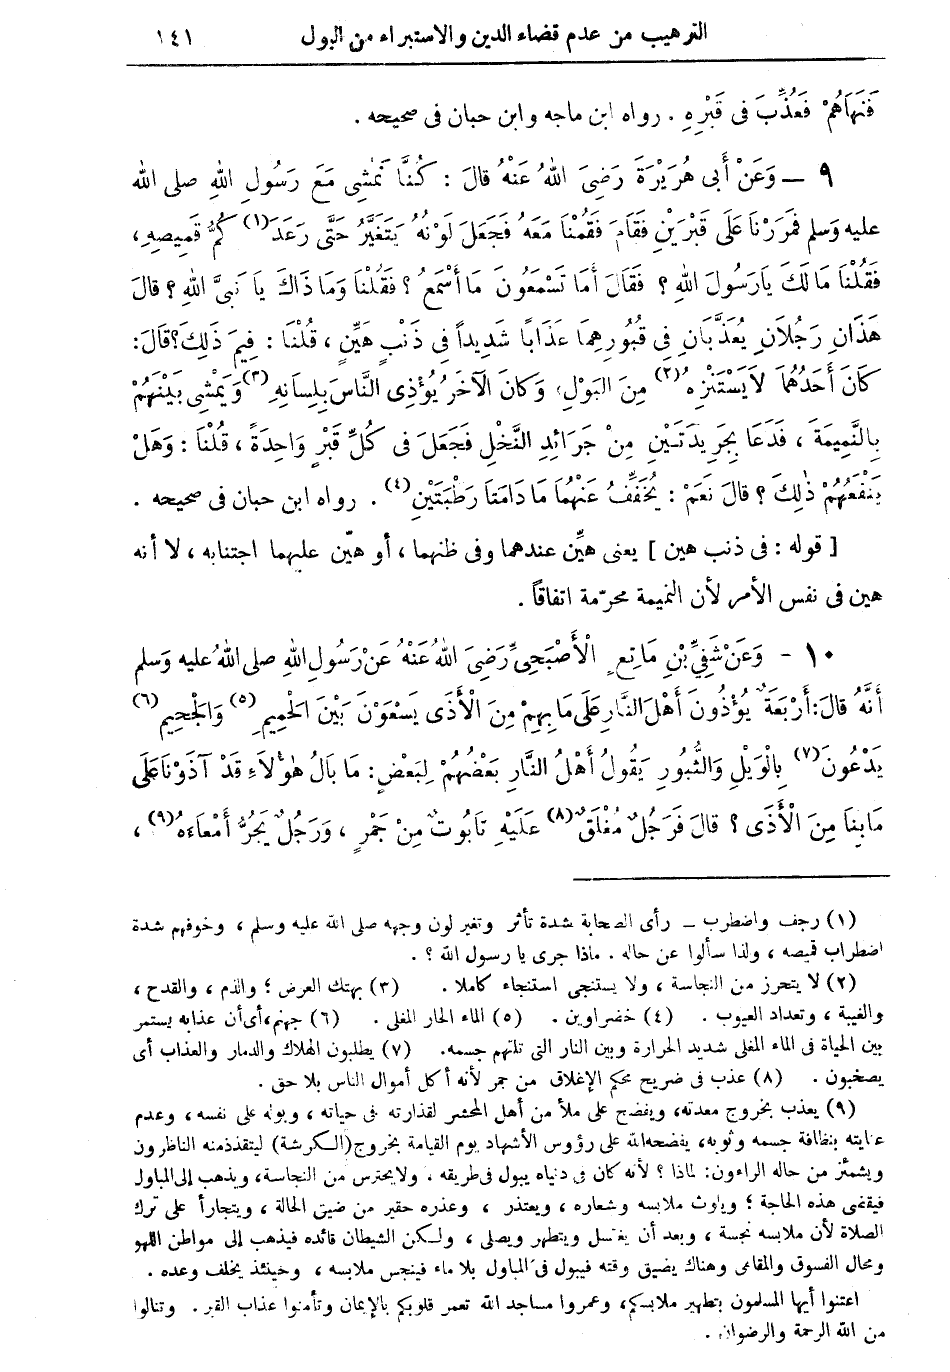 الترهيب من عدم قضاء الدين والاستبراء من البول ١٤١
فَنَهَاهُمْ فَعُذِّبَ فى قَبْرِهِ . رواه ابن ماجه وابن حبان فى صحيحه .
٩ — وَعَنْ أَبى هُرَيْرَةَ رَضِىَ اللهُ عَنْهُ قالَ : كُنَّا نَمْشِى مَعَ رَسُولِ اللهِ صلى الله
عليه وَسلم فَمَرَرْنَا عَلَى قَبْرَيْنِ فَقَامَ فَقُمْنَا مَعَهُ فَجَعَلَ لَوْنُهُ يَتَغَيَّرُ حَتَّى رَعَدَ (١) كُمُّ قَمِيصِهِ ،
فَقُلْنَا مَا لَكَ يَارَسُولَ اللهِ ؟ فَقَالَ أَمَا تَسْمَعُونَ مَا أَسْمَعُ ؟ فَقُلْنَا وَمَا ذَاكَ يَا نَبىَّ اللهِ ؟ قالَ
هَذَانِ رَجُلاَنِ يُعَذَّبَانِ فِى قُبُورِهِمَا عَذَابًا شَدِيداً فِى ذَنْبٍ هَيِّنٍ ، قُلْنَا : فِيمَ ذَلِكَ؟قَالَ:
كَانَ أَحَدُهُمَا لاَيَسْتَنْزِهُ (٢) مِنَ البَوْلِ، وَكَانَ الآخَرُ يُؤْذِى النَّاسَ بِلِسَانِهِ (٣) وَيَمْشِى بَيْنَهُمْ
بِالنَّمِيمَةِ ، فَدَعَا بِجَرِيدَتَيْنِ مِنْ جَرَائِدِ النَّخْلِ فَجَعَلَ فى كُلِّ قَبْرٍ وَاحِدَةً ، قُلْنَا : وَهَلْ
يَنْفَعُهُمْ ذٰلِكَ ؟ قالَ نَعَمْ : يُخَفَّفُ عَنْهُمَا مَا دَامَتَا رَطْبَتَيْنِ (٤) . رواه ابن حبان فى صحيحه .
[ قوله : فى ذنب هين ] يعنى هيِّن عندهما وفى ظنهما ، أو هيّن عليهما اجتنابه ، لا أنه
هين فى نفس الأمر لأن النميمة محرّمة اتفاقاً .
١٠ - وَعَنْ شُفَىِّ بْنِ مَاتِعٍ الْأَصْبَحِىِّ رَضِىَ اللهُ عَنْهُ عَنْ رَسُولِ اللهِ صلى اللهُ عليه وَسلم
أَنَّهُ قالَ: أَرْبَعَةٌ يُؤْذُونَ أَهْلَ النَّارِ عَلَى مَا بِهِمْ مِنَ الْأَذَى يَسْعَوْنَ بَيْنَ الْحَمِيمِ (٥) وَالْجَحِيمِ (٦)
يَدْعُونَ (٧) بِالْوَيْلِ وَالثُّبُورِ يَقُولُ أَهْلُ النَّارِ بَعْضُهُمْ لِبَعْضٍ : مَا بَالُ هٰؤُلاَءِ قَدْ آذَوْنَا عَلَى
مَا بِنَا مِنَ الْأَذَى ؟ قالَ فَرَجُلٌ مُغْلَقٌ (٨) عَلَيْهِ تَابُوتٌ مِنْ جَمْرٍ ، وَرَجُلٌ يَجُرُّ أَمْعَاءَهُ (٩) ،
(١) رجف واضطرب — رأى الصحابة شدة تأثر وتغير لون وجهه صلى الله عليه وسلم ، وخوفهم شدة
اضطراب قميصه ، ولذا سألوا عن حاله . ماذا جرى يا رسول الله ؟ .
(٢) لا يتحرز من النجاسة ، ولا يستنجى استنجاء كاملا . (٣) بهتك العرض ؛ والذم ، والقدح ،
والغيبة ، وتعداد العيوب . (٤) خضراوين . (٥) الماء الحار المغلى . (٦) جهنم،أى أن عذابه يستمر
بين الحياة فى الماء المغلى شديد الحرارة وبين النار التى تلتهم جسمه. (٧) يطلبون الهلاك والدمار والعذاب أى
يصخبون . (٨) عذب فى ضريح محكم الإغلاق من جمر لأنه أكل أموال الناس بلا حق .
(٩) يعذب بخروج معدته، ويفضح على ملأ من أهل المحشر لقذارته فى حياته ، وبوله على نفسه ، وعدم
عنايته بنظافة جسمه وثوبه، يفضحه الله على رؤوس الأشهاد يوم القيامة بخروج(الكرشة) ليتقذذ منه الناظرون
ويشمئز من حاله الراءون: لماذا ؟ لأنه كان فى دنياه يبول فى طريقه . ولا يحترس من النجاسة، ويذهب إلى المباول
فيقضى هذه الحاجة ؛ ويلوث ملابسه وشعاره ، ويعتذر ، وعذره حقير من ضيق الحالة ، ويتجارأ على ترك
الصلاة لأن ملابسه نجسة ، وبعد أن يغتسل ويتطهر ويصلى ، ولكن الشيطان قائده فيذهب إلى مواطن اللهو
ومحال الفسوق والمقامى وهناك يضيق وقته فيبول فى المباول بلا ماء فينجس ملابسه ، وحينئذ يخلف وعده .
اعتنوا أيها المسلمون بتطهير ملابسكم، وعمروا مساجد الله تعمر قلوبكم بالإيمان وتأمنوا عذاب القبر . وتنالوا
من الله الرحمة والرضوان .